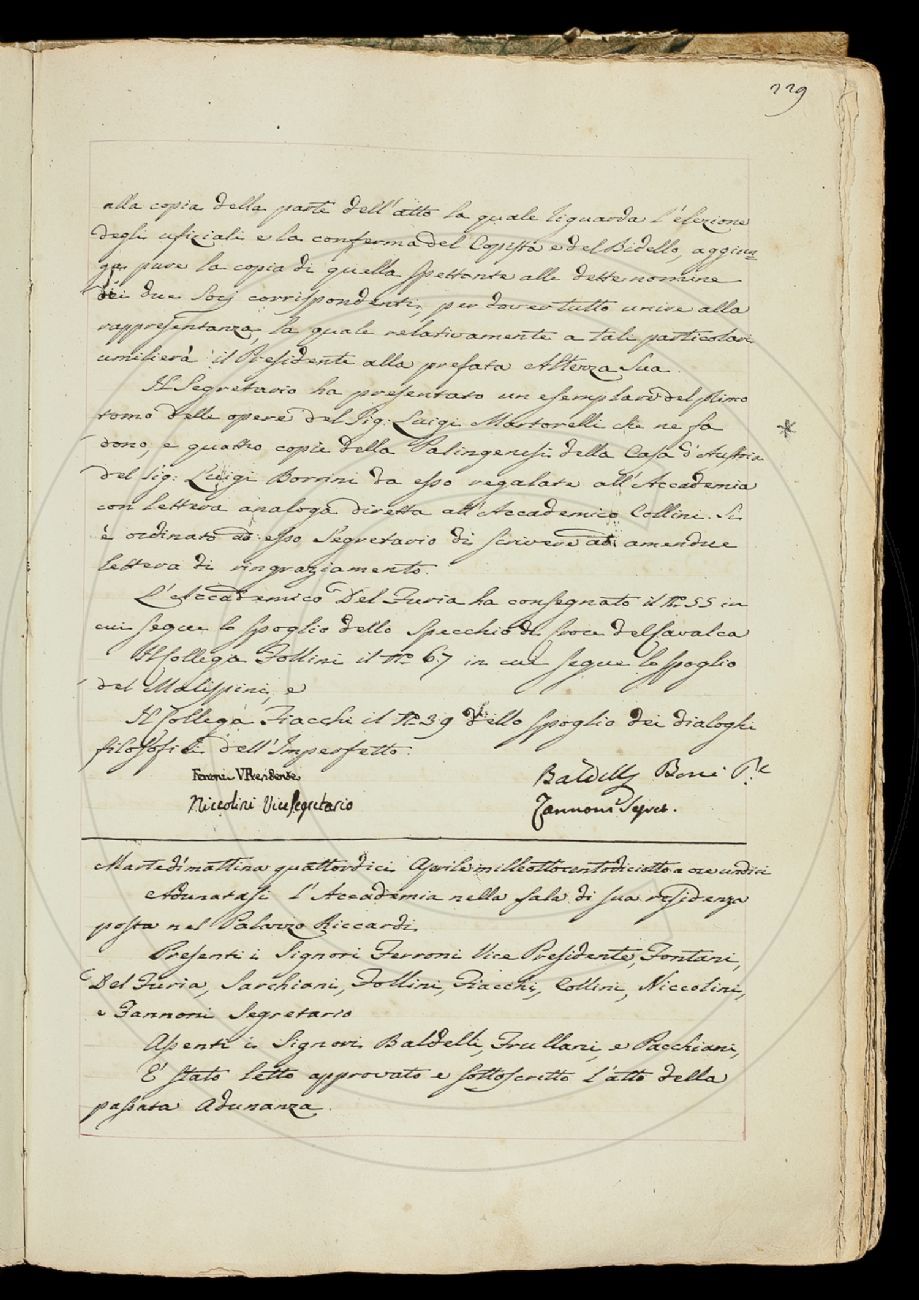 229
alla copia della parte dell'atto la quale riguarda l'elezione
degli ufiziali e la conferma del Copista e del Bidello, aggiun=
ga pure la copia di quella spettante alle dette nomine
dei due Socj corrispondenti, per dover tutto unire alla
rappresentanza, la quale relativamente a tali particolari
umilierà il Presidente alla prefata Altezza Sua.
Il Segretario ha presentato un esemplare del primo
tomo delle opere del Sig: Luigi Martorelli che ne fa
dono, e quattro copie della Palingenesi della Casa d'Austria *
del Sig: Luigi Borrini da esso regalate all'Accademia
con lettera analoga diretta all'Accademico Collini. Si
è ordinato ad esso Segretario di scrivere ad amendue
lettera di ringraziamento.
L'Accademico Del Furia ha consegnato il N.º 55 in
cui segue lo spoglio dello Specchio di Croce del Cavalca
Il Collega Follini il N.º 67 in cui segue lo spoglio
del Malispini, e
Il Collega Fiacchi il N.º 39 dello spoglio dei dialoghi
filosofici dell'Imperfetto.
Ferroni V. Presidente Baldelli Boni P.te
Niccolini Vice Segretario Zannoni Segret.
Martedì mattina quattordici Aprile milleottocentodiciotto a ore undici
Adunatasi l'Accademia nella sala di sua residenza
posta nel Palazzo Riccardi.
Presenti i Signori Ferroni Vice Presidente, Fontani,
Del Furia, Sarchiani, Follini, Fiacchi, Collini, Niccolini,
e Zannoni Segretario
Assenti i Signori Baldelli, Frullani, e Pacchiani,
E' stato letto approvato e sottoscritto l'atto della
passata Adunanza.